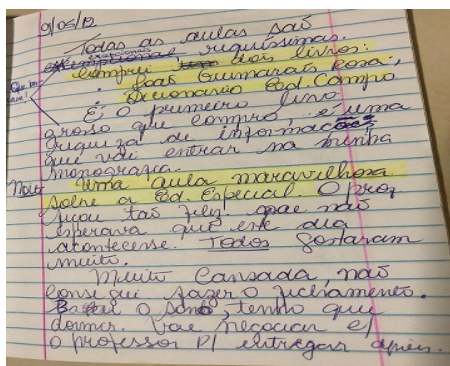 9/05/12
Todas as aulas são
excepcionais
riquíssimas.
comprei dois livros:
João Guimarães Rosa;
Dicionário Ed. Campo
É o primeiro livro
grosso que comprei, é uma
riqueza de informações
que vai entrar na minha
monografia.
Uma aula maravilhosa
sobre a Ed. Especial. O prof
ficou tão feliz! que não
esperava que este dia
acontecesse. Todos gostaram
muito.
Muito cansada, não
consegui fazer o fichamento.
o sono, tenho que
dormir. Vou negociar c/
o professor p/ entregar depois.